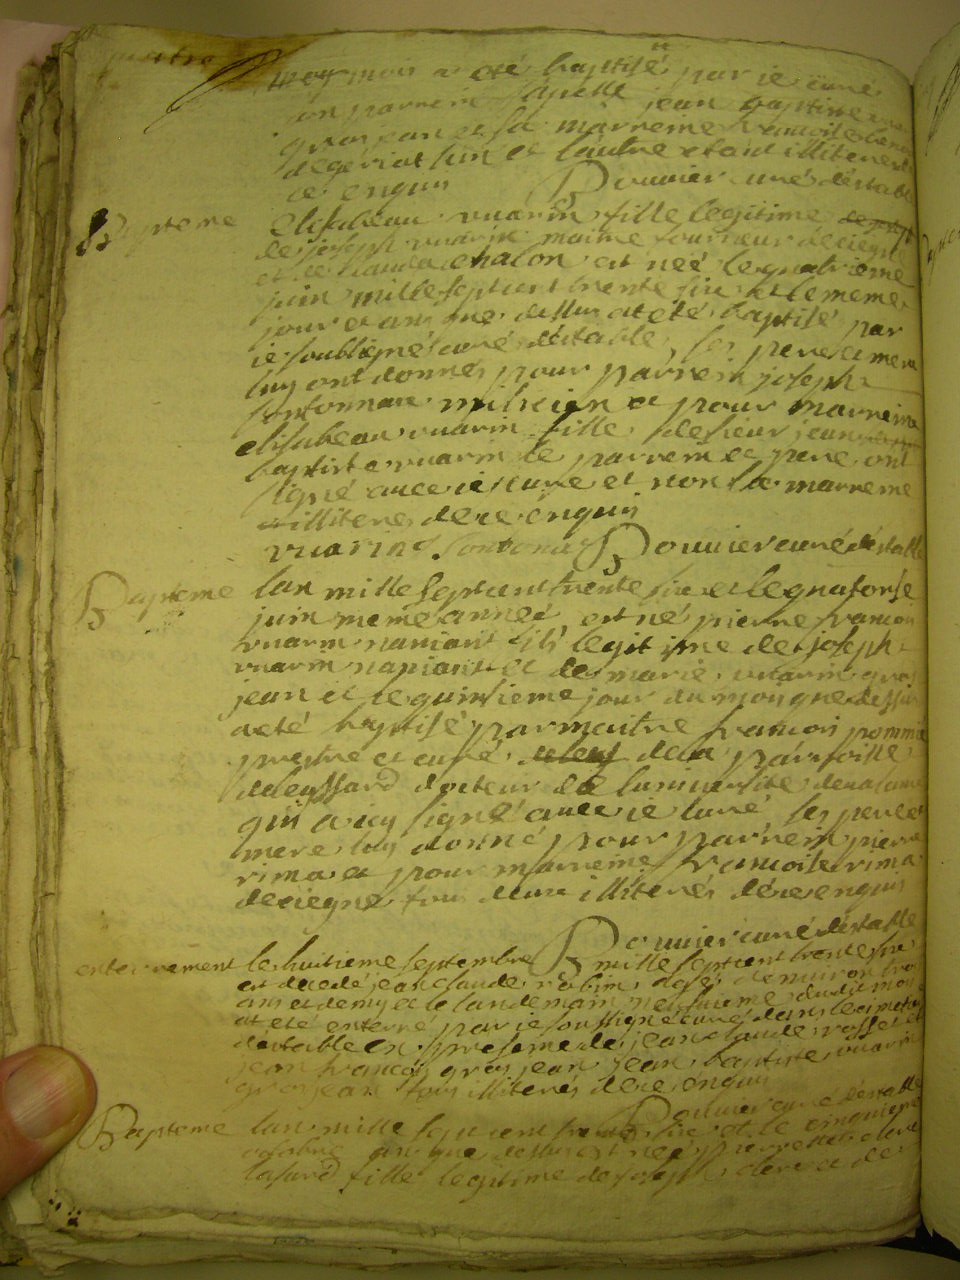 quatre
mois a eté baptisé par je curé
son parrein apellé jean baptiste
grosjean et sa marreine francoise
l'un et l'autre etant illiterés
de ce enquis Bouvier curé destable
Bapteme elisabeau vuarin fille legitime
de joseph vuarin moine tourneur de ciegne
et de clauda chalon est neé le quatrieme
juin mille sept cent trente six et le meme
jour et an que dessus at eté baptisé par
je soubsigné curé destable, ses pere et mere
luy ont donnés pour parrein joseph
milicien et pour marreine
elisabeau vuarin fille de sieur jean
baptiste vuarin le parrein et pere ont
signé avec je curé et non la marreine
illiteré de ce enquis
vuarin Bouvier curé destable
Bapteme lan mille sept cent trente six et le quatorse
juin meme anneé, est né pierre francois
vuarin naniant fils legitime de joseph
vuarin naniant et de marie vuarin gros
jean et le quinsieme jour du mois que dessus
a eté baptisé par maitre francois pommie
prestre et curé de la parroisse
docteur de l'université
qui a icy signé avec je curé, ses pere et
mere luy donné pour parrein pierre
rima et pour marreine francoise rima
de ciegne tous deux illiterés de ce enquis
Bouvier curé destable
enterrement le huitieme septembre mille sept cent trente six
est decedé jean claude robin agé denviron trois
ans et demy et le landemain neufvieme dudit mois
at eté enterré par je soussigné curé dans le cimetiere
destable en presence de jean claude rosset et
jean francois gros jean jean baptiste vuarin
grosjean tous illiterés de ce enquis
Bouvier curé destable
Bapteme lan mille sept cent trente six et le cinquieme
octobre an que dessus est neé pierrette clere
fille legitime de joseph clere et de